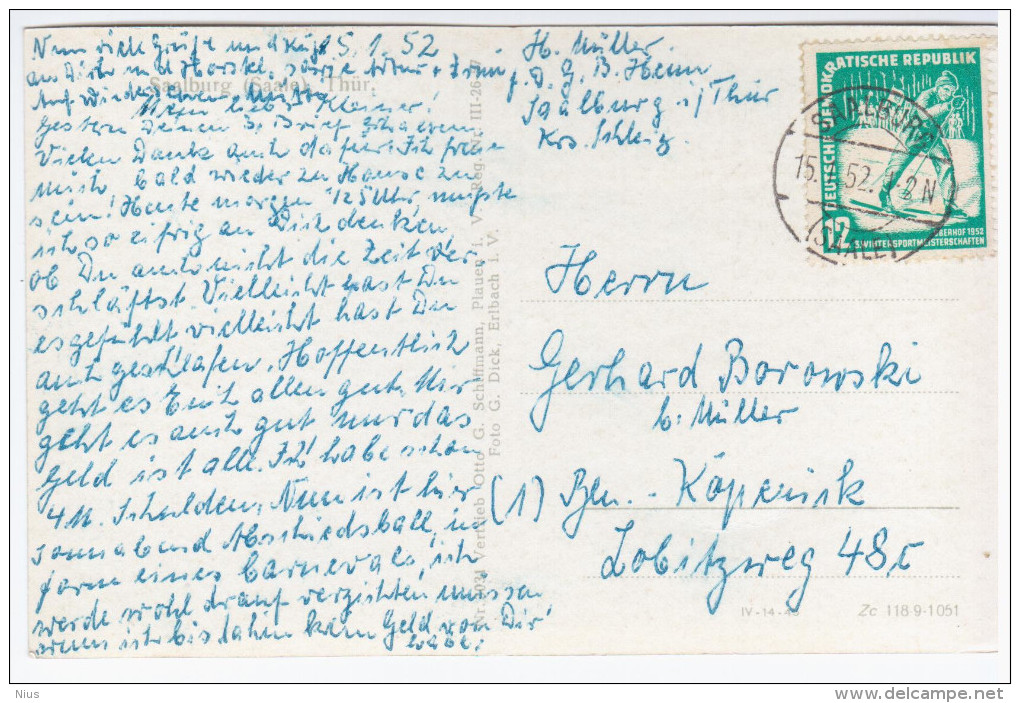 Nun viele Grüße und Küße 15.1.52
an Dich und Horstel, sowie Artur + Erna
Auf Wiedersehen
Saalburg (Saale) Thür.
Mein lieber Kleiner!
Gestern Deinen 3. Brief erhalten
Vielen Dank auch dafür. Ich freue
mich, bald wieder zu Hause zu
sein! Heute morgen 1/2 5 Uhr mußte
ich so eifrig an Dich denken,
ob Du auch nicht die Zeit ver
schläfst. Vielleicht hast Du
es gefühlt vielleicht hast Du
auch geschlafen. Hoffentlich
geht es Euch allen gut. Mir
geht es auch gut nur das
Geld ist alle. Ich habe schon
4 M. Schulden. Nun ist hier
sonnabend Abschiedsball, in
form eines Carnevals, ich
werde wohl drauf verzichten müssen
wenn ich bis dahin kein Geld von Dir
habe!
H. Müller
z. Z. F.D.G.B. Heim
Saalburg i/Thür
Krs. Schleiz.
Herrn
Gerhard Borowski
b. Müller
(1) Bln. - Köpenick
Lobitzweg 48c
Vertrieb Otto G. Schiffmann, Plauen i. V. Reg.-Nr. III-26
Foto G. Dick, Erlbach i. V.
IV-14-48 Zc 118-9-1051
DEUTSCHE DEMOKRATISCHE REPUBLIK
12
OBERHOF 1952
3. WINTERSPORTMEISTERSCHAFTEN
SAALBURG
15.1.52.-12N
(SAALE)
Nius
http://www.delcampe.net